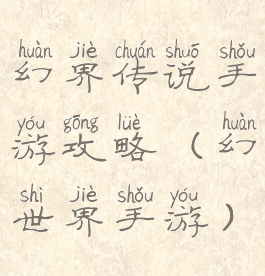 huàn jiè chuán shuō shǒu
幻界传说手
yóu gōng lüè huàn
游攻略（幻
shì jiè shǒu yóu
世界手游）